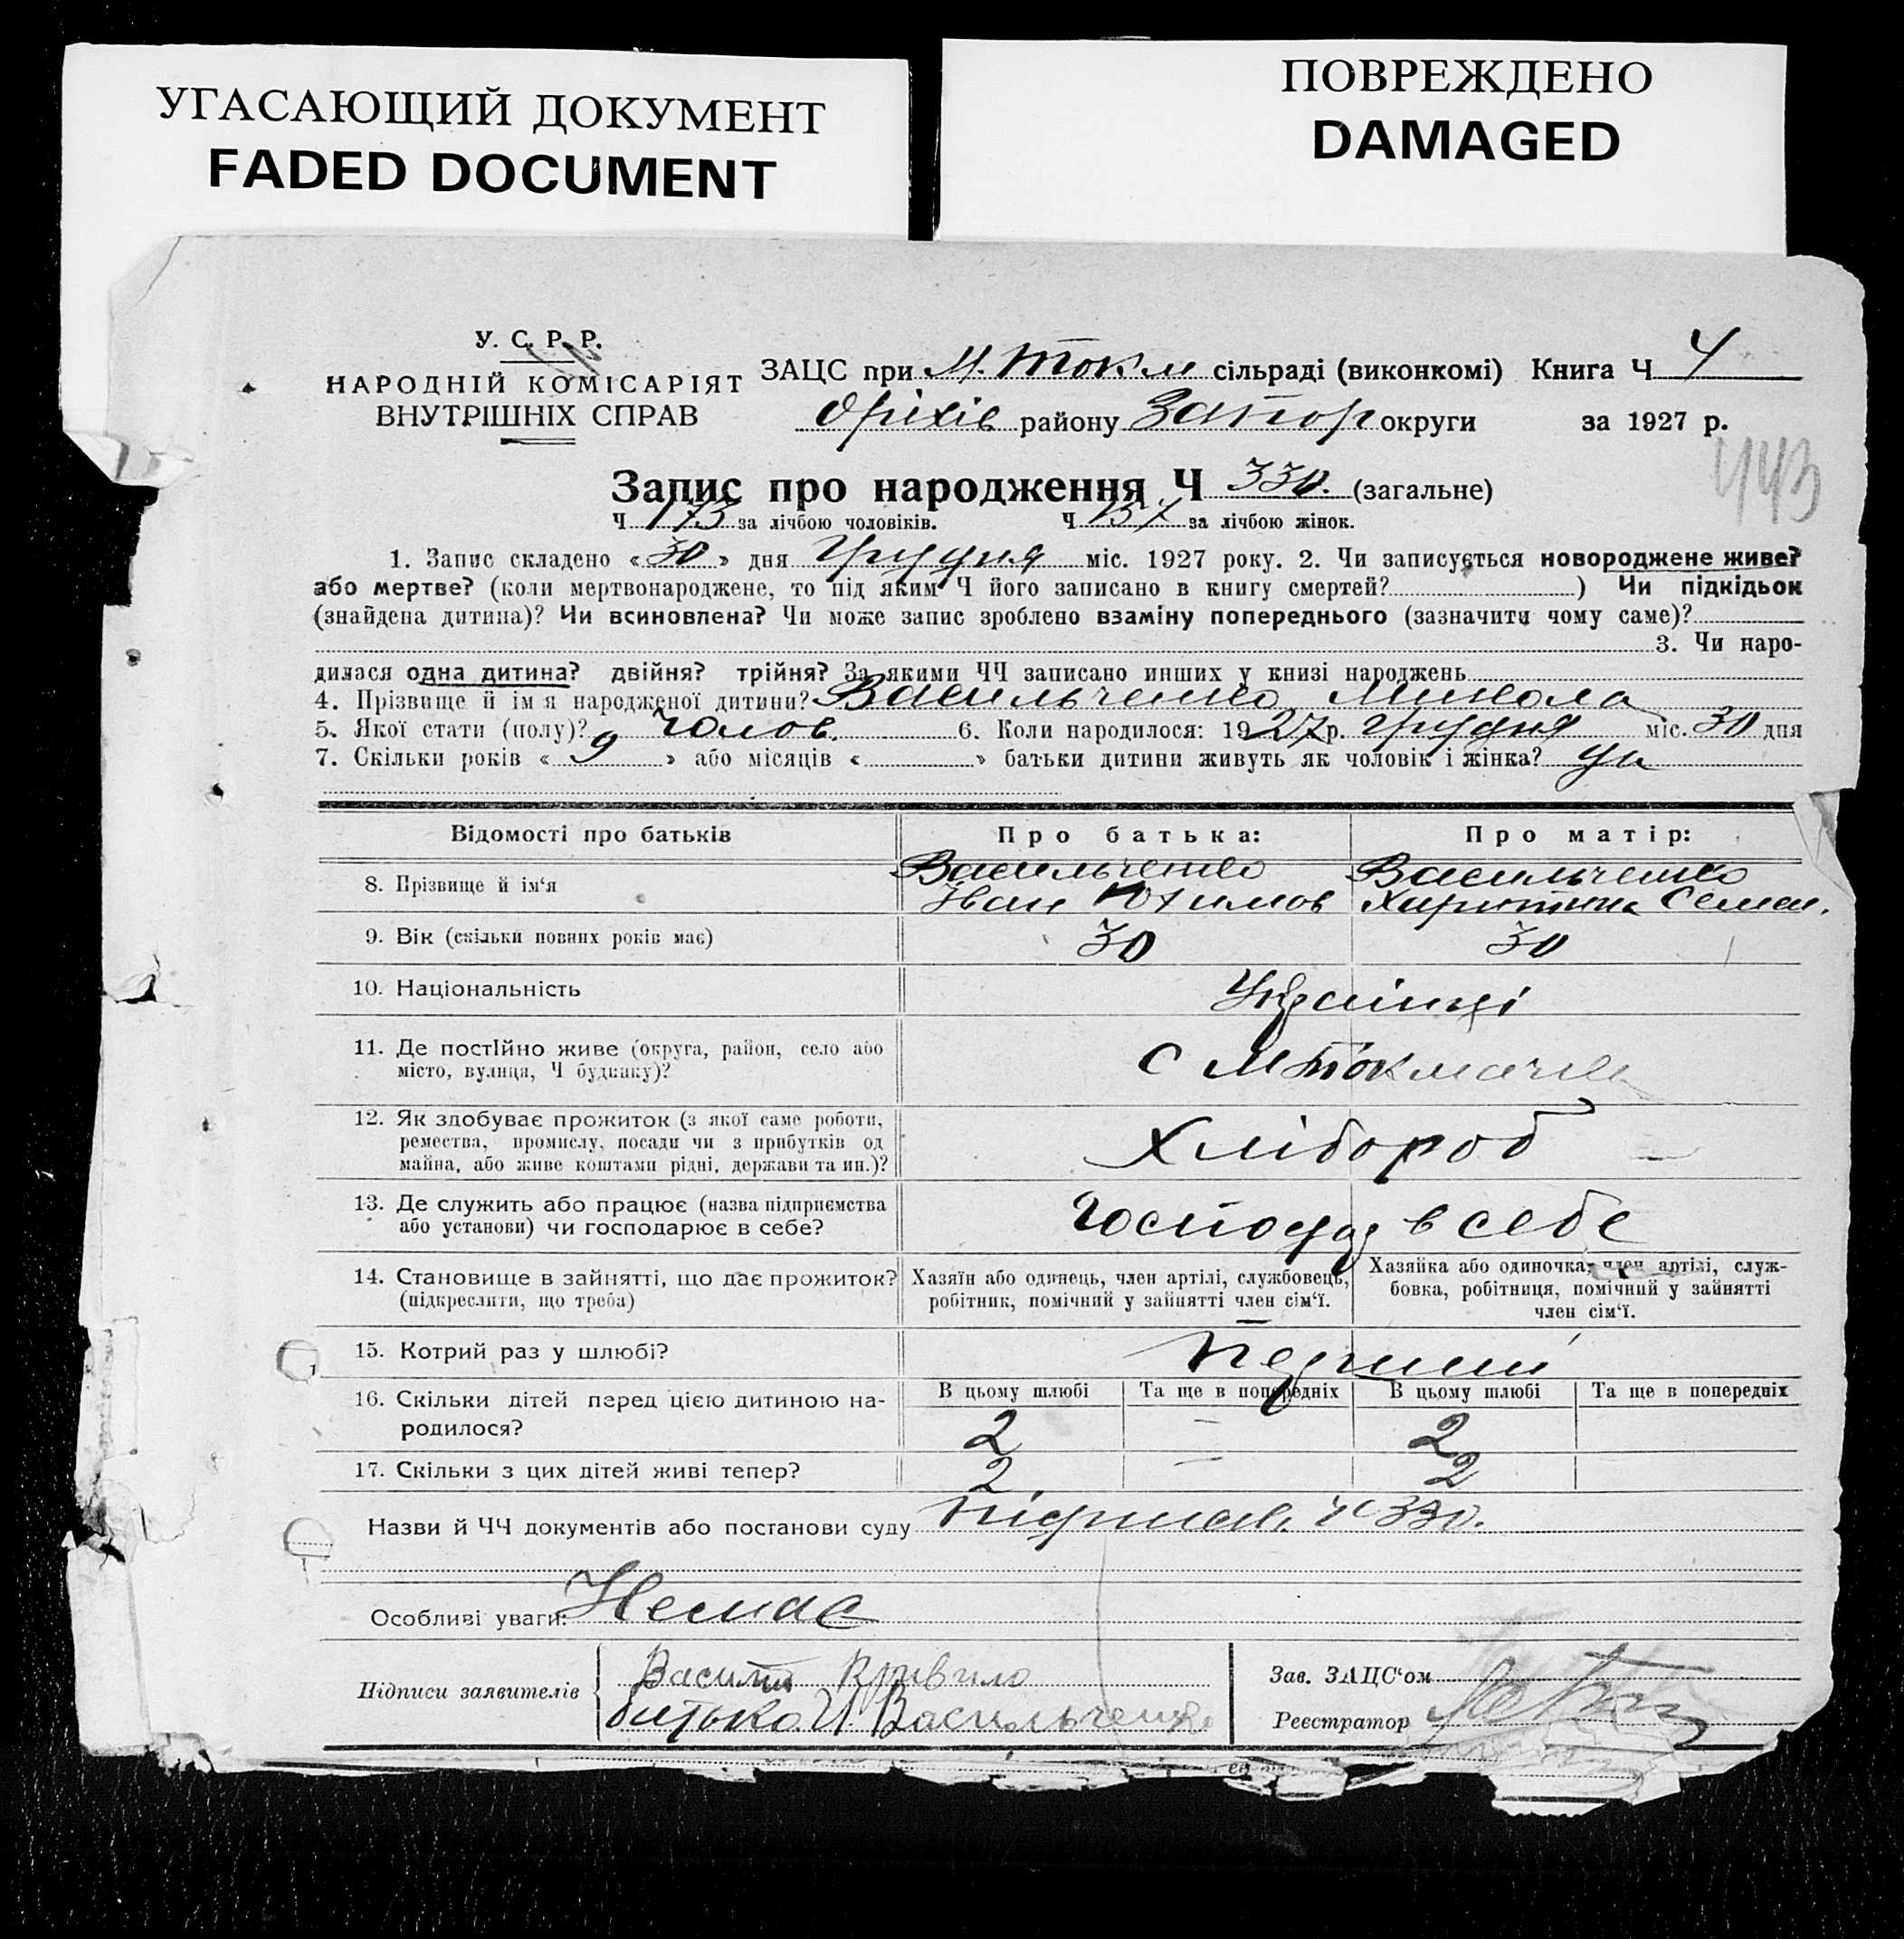 УГАСАЮЩИЙ ДОКУМЕНТ
FADED DOCUMENT
ПОВРЕЖДЕНО
DAMAGED
У. С. Р. Р.
НАРОДНІЙ КОМІСАРІЯТ
ВНУТРІШНІХ СПРАВ
ЗАЦС при М. Токм сільраді (виконкомі) Книга Ч 4
Оріхів району Запор округи за 1927 р.
443
Запис про народження Ч 330. (загальне)
Ч 173 за лічбою чоловіків. Ч 157 за лічбою жінок.
1. Запис складено «30» дня Грудня міс. 1927 року. 2. Чи записується новороджене живе?
або мертве? (коли мертвонароджене, то під яким Ч його записано в книгу смертей? ) Чи підкідьок
(знайдена дитина)? Чи всиновлена? Чи може запис зроблено взаміну попереднього (зазначити чому саме)?
3. Чи наро-
дилася одна дитина? двійня? трійня? За якими ЧЧ записано инших у книзі народжень
4. Прізвище й ім'я народженої дитини? Васильченко Микола
5. Якої стати (полу)? чолов. 6. Коли народилося: 1927 р. грудня міс. 30 дня
7. Скільки років « 9 » або місяців « » батьки дитини живуть як чоловік і жінка? да
Відомості про батьків Про батька: Про матір:
8. Прізвище й ім'я Васильченко Іван Юхимов Васильченко Харитина Семен.
9. Вік (скільки повних років має) 30 30
10. Національність Українці
11. Де постійно живе (округа, район, село або
місто, вулиця, Ч будинку)? С М Токмачка
12. Як здобуває прожиток (з якої саме роботи,
ремества, промислу, посади чи з прибутків од
майна, або живе коштами рідні, держави та ин.)? Хлібороб
13. Де служить або працює (назва підприємства
або установи) чи господарює в себе? Господар в себе
14. Становище в зайнятті, що дає прожиток?
(підкреслити, що треба)
Хазяїн або одинець, член артілі, службовець,
робітник, помічний у зайнятті член сім'ї.
Хазяйка або одиночка, член артілі, служ-
бовка, робітниця, помічний у зайнятті
член сім'ї.
15. Котрий раз у шлюбі? Перший
В цьому шлюбі Та ще в попередніх В цьому шлюбі Та ще в попередніх
16. Скільки дітей перед цією дитиною на-
родилося? 2 — 2
17. Скільки з цих дітей живі тепер? 2 — 2
Назви й ЧЧ документів або постанови суду 330.
Особливі уваги: Немає
Підписи заявителів
батько И. Васильченко
Зав. ЗАЦС'ом
Реєстратор